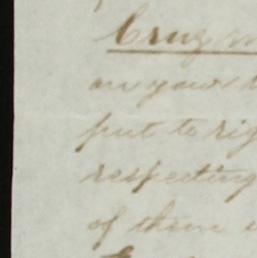 Cruz
on your
put to rig
respecting
of them